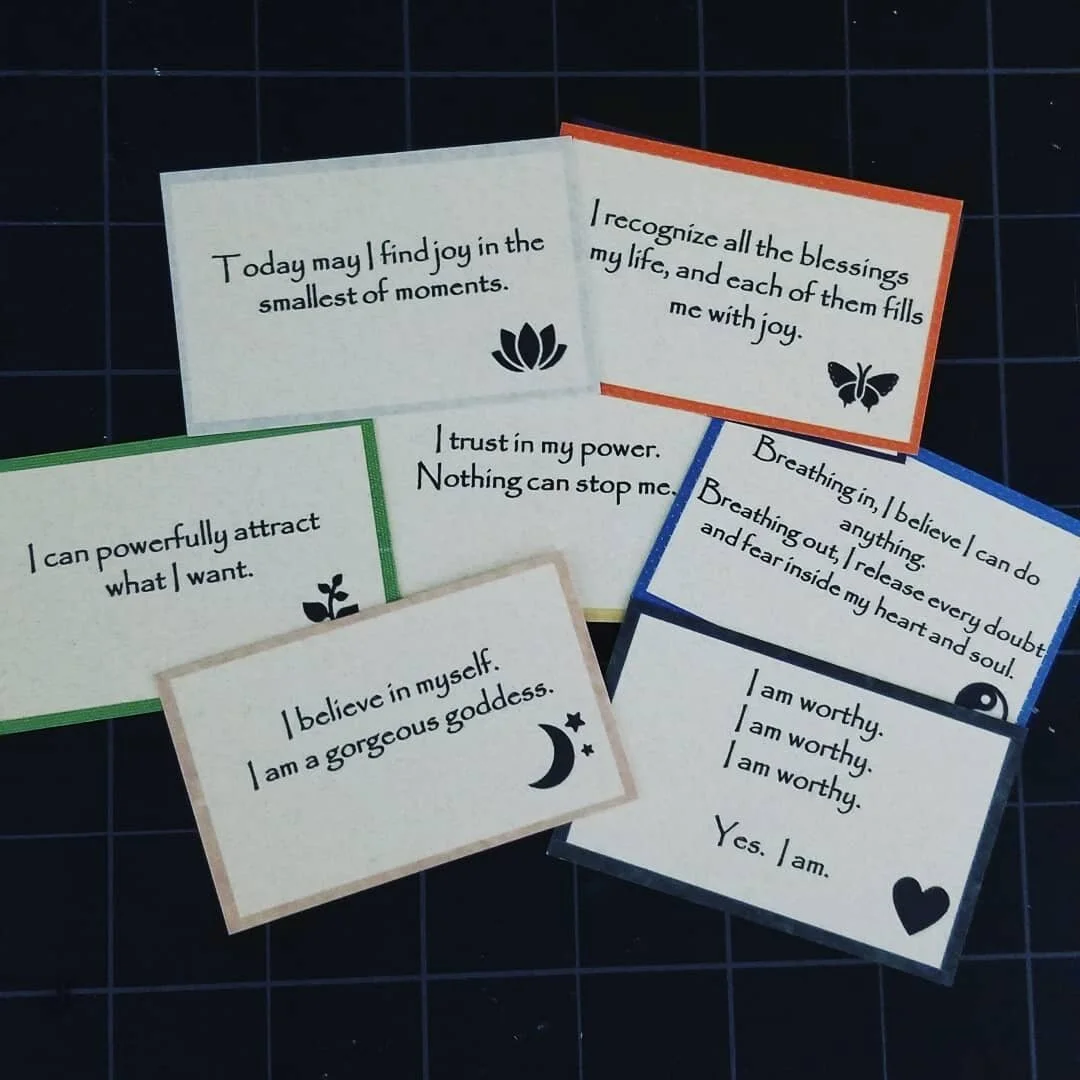 Today may I find joy in the
smallest of moments.
I recognize all the blessings
my life, and each of them fills
me with joy.
I trust in my power.
Nothing can stop me.
Breathing in, I believe I can do
anything.
Breathing out, I release every doubt
and fear inside my heart and soul.
I can powerfully attract
what I want.
I believe in myself.
I am a gorgeous goddess.
I am worthy.
I am worthy.
I am worthy.
Yes. I am.